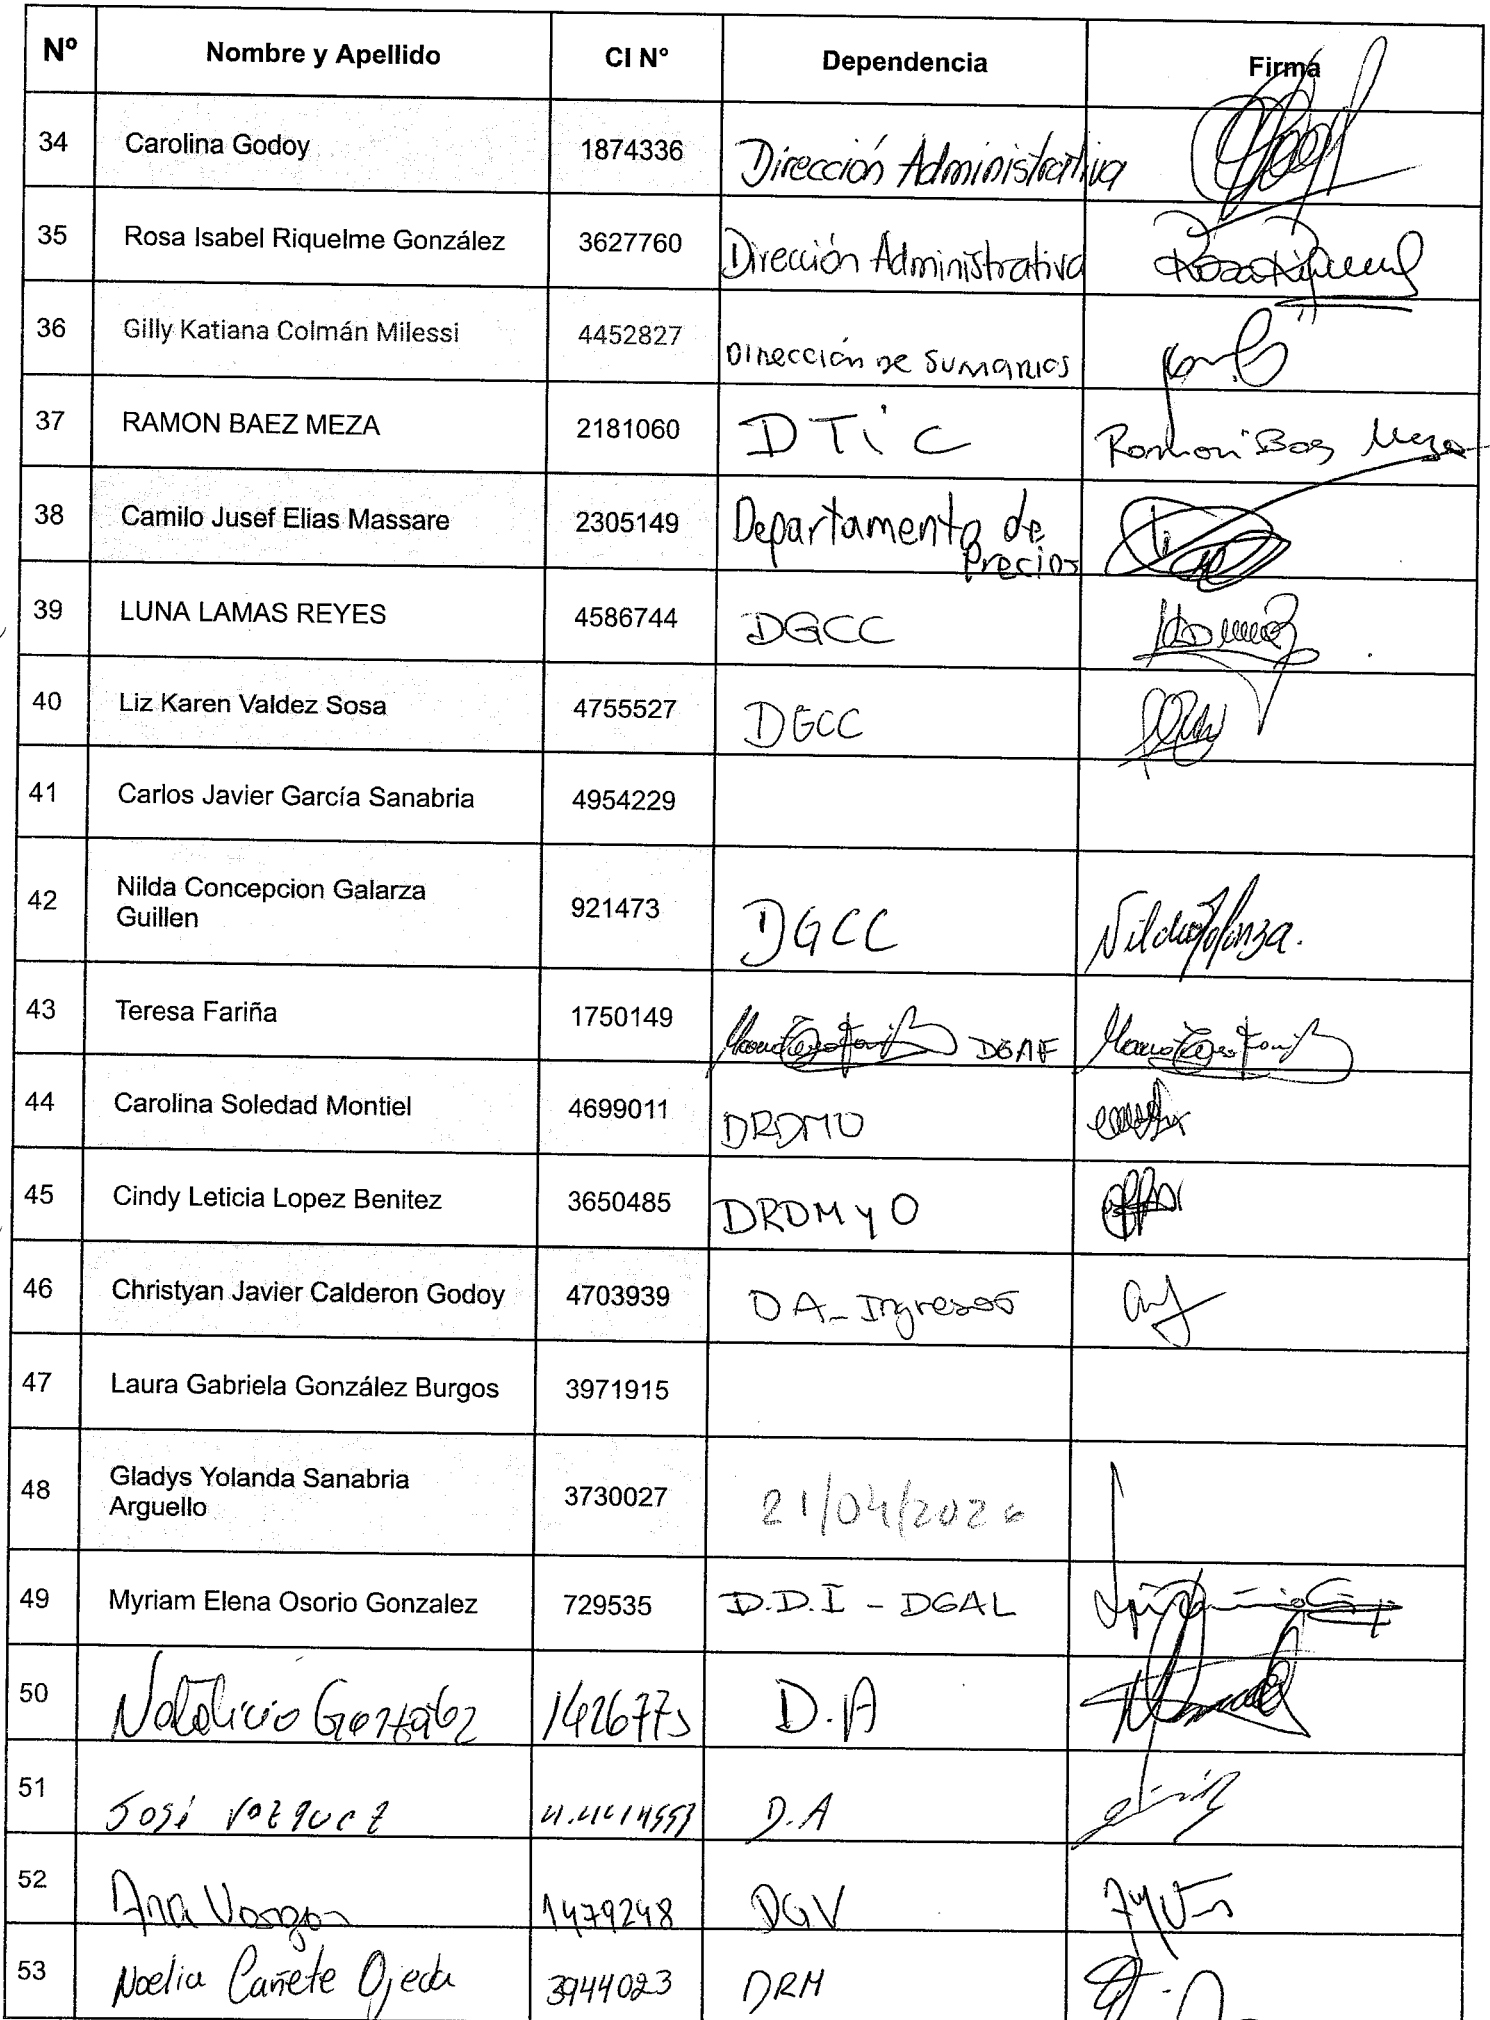 Nº Nombre y Apellido CI N° Dependencia Firma
34 Carolina Godoy 1874336 Dirección Administrativa
35 Rosa Isabel Riquelme González 3627760 Dirección Administrativa
36 Gilly Katiana Colmán Milessi 4452827 Dirección de Sumarios
37 RAMON BAEZ MEZA 2181060 DTiC Ramon Baez Meza
38 Camilo Jusef Elias Massare 2305149 Departamento de
Precios
39 LUNA LAMAS REYES 4586744 DGCC
40 Liz Karen Valdez Sosa 4755527 DGCC
41 Carlos Javier García Sanabria 4954229
42 Nilda Concepcion Galarza
Guillen 921473 DGCC
43 Teresa Fariña 1750149 DGAF
44 Carolina Soledad Montiel 4699011 DRDMO
45 Cindy Leticia Lopez Benitez 3650485 DRDM y O
46 Christyan Javier Calderon Godoy 4703939 DA_Ingresos
47 Laura Gabriela González Burgos 3971915
48 Gladys Yolanda Sanabria
Arguello 3730027 21/04/2026
49 Myriam Elena Osorio Gonzalez 729535 D.D.I - DGAL
50 Natalicio González D.A
51 José Vazquez D.A
52 Ana Vargas 1479248 DGV
53 Noelia Cañete Ojeda 3944023 DRM